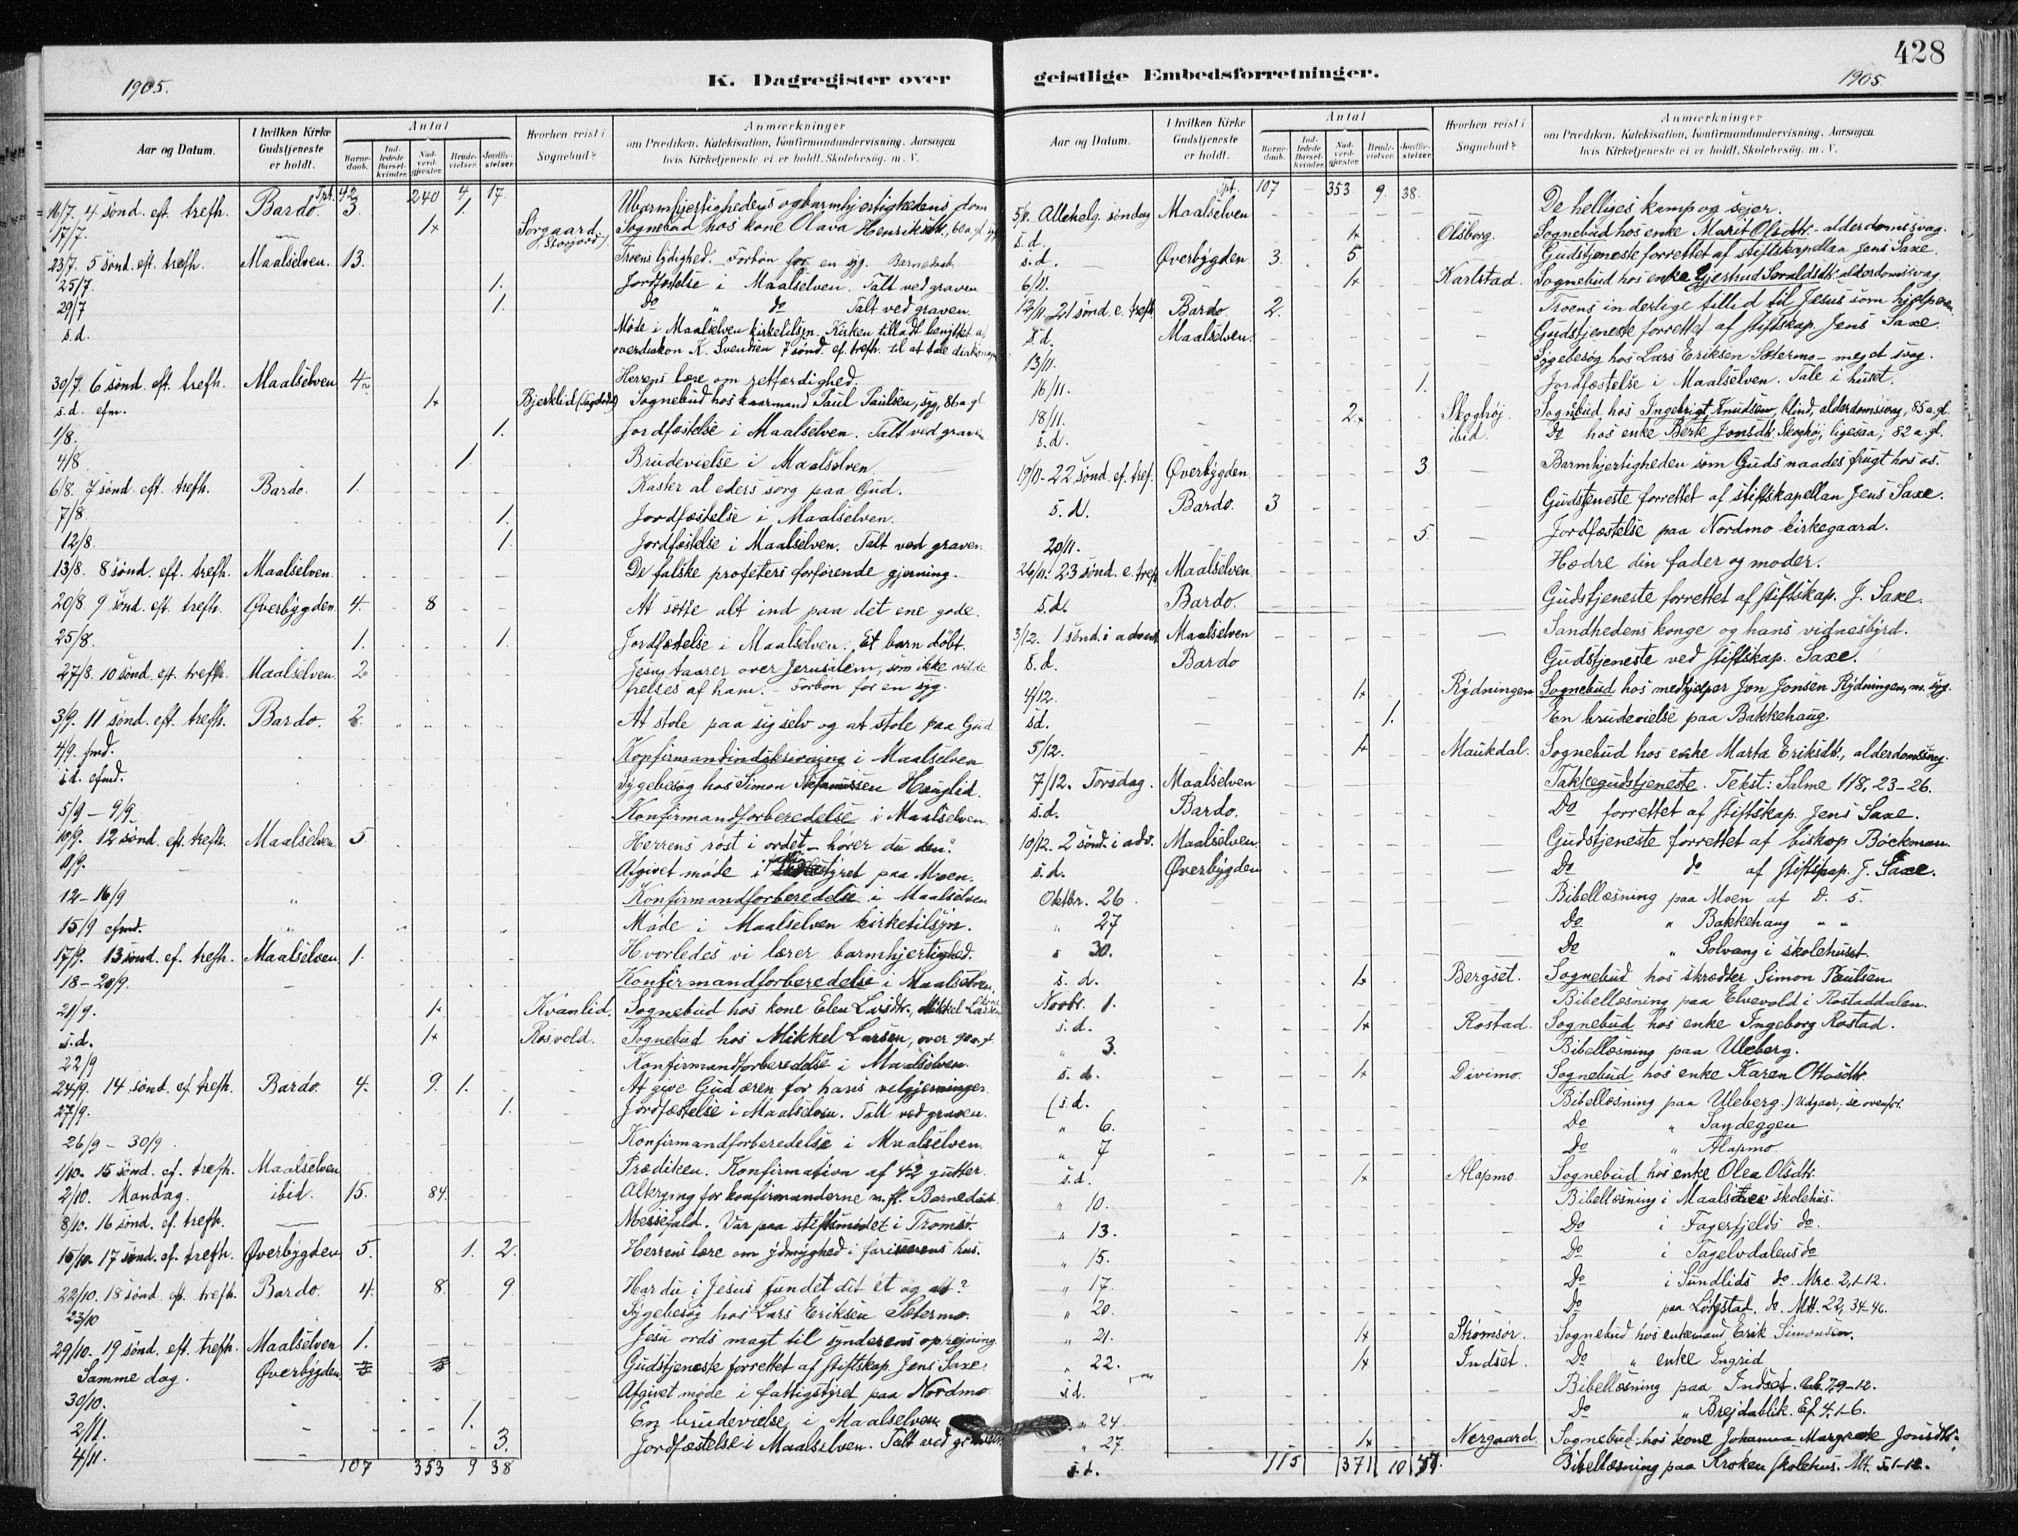 428
1905.
K. Dagregister over
Aar og Datum. I hvilken Kirke Gudstjeneste er holdt. Antal Barnedaab. Indledede Barselkvinder. Nadverdgjæster. Brudevielser. Jordfæstelser. Hvorhen reist i Sognebud? Anmærkninger om Prædiken, Katekisation, Konfirmandundervisning, Aarsagen hvis Kirketjeneste ei er holdt, Skolebesøg, m. V.
Tpt. 42 240 4 17.
16/7. 4 sønd. eft. trefh. Bardo. 3. 1. Ubarmhjertighedens og barmhjertighedens dom
17/7. 1+ Sørgaard, Sognebud hos kone Olava Henriksdtr.,
23/7. 5 sønd. eft. trefh. Maalselven. 13. Troens lydighed. Forbøn for en syg. Barnedaab
25/7. 1. Jordfæstelse i Maalselven. Talt ved graven
29/7 1. do " do Talt ved graven.
s.d. Møde i Maalselven kirketilsyn. Kirken tilladt benyttet af
overdiakon K. Svendsen 7 sønd. ef. trefh. til at tale
30/7. 6 sønd. eft. trefh. Maalselven 4 Herrens lære om retfærdighed.
s.d. efm. 1+ Bjerklid Sognebud hos kaarmand Paul Paulsen, syg, 86 a. gl
1/8. 1. Jordfæstelse i Maalselven. Talt ved graven
4/8 1. Brudevielse i Maalselven
6/8. 7 sønd. eft. trefh. Bardo. 1. Kaster al eders sorg paa Gud.
7/8. 1. Jordfæstelse i Maalselven.
12/8. 1. Jordfæstelse i Maalselven. Talt ved graven
13/8. 8 sønd. eft. trefh. Maalselven. De falske profeters forførende gjerning.
20/8. 9 sønd. eft. trefh. Øverbygden. 4. 8 At sætte alt ind paa det ene gode.
25/8. 1. 1. Jordfæstelse i Maalselven. Et barn døbt.
27/8. 10 sønd. eft. trefh. Maalselven. 2 Jesu taarer over Jerusalem, som ikke vilde
frelses af ham. - Forbøn for en syg.
3/9. 11 sønd. eft. trefh. Bardo. 2. At stole paa sig selv og at stole paa Gud
4/9. fmd. Konfirmandindskrivning i Maalselven
s.d. efmd. Sygebesøg hos Simon Hauglid.
5/9 – 9/9. Konfirmandforberedelse i Maalselven.
10/9. 12 sønd. eft. trefh. Maalselven. 5. Herrens røst i ordet – hører du den?
11/9. Afgivet møde i paa Moen.
12–16/9 " Konfirmandforberedelse i Maalselven
15/9 efmd. Møde i Maalselven kirketilsyn.
17/9. 13 sønd. ef. trefh. Maalselven. 1. Hvorledes vi lærer barmhjertighed.
18–20/9. Konfirmandforberedelse i Maalselven.
21/9. 1+ Kvanlid. Sognebud hos kone Elen Larsdtr.
s.d. 1+ Rosvold. Sognebud hos Mikkel Larsen, over 90 a. gl.
22/9 Konfirmandforberedelse i Maalselven.
24/9. 14 sønd. ef. trefh. Bardo. 4. 9. 1. At give Gud æren for hans velgjerninger
27/9. 1. Jordfæstelse i Maalselven. Talt ved graven.
26/9 – 30/9. Konfirmandforberedelse i Maalselven.
1/10. 15 sønd. ef. trefh. Maalselven Prædiken. Konfirmation af 42 gutter.
2/10. Mandag. ibid. 15. 84. Altergang for konfirmanderne m. fl. Barnedaab.
8/10. 16 sønd. ef. trefh. Messefald. Var paa stiftsmødet i Tromsø.
15/10. 17 sønd. ef. trefh. Øverbygden 5. 1. 2. Herrens lære om ydmyghed i fariseerens hus.
22/10. 18 sønd. eft. trefh. Bardo. 4. 8. 9. Har du i Jesus fundet dit et og alt?
23/10 Sygebesøg hos Lars Eriksen Sætermo.
29/10. 19 sønd. eft. trefh. Maalselven 1. Jesu ords magt til synderens oprejsning.
Samme dag. Øverbygden. Gudstjeneste forrettet af stiftskap. Jens Saxe.
30/10. Afgivet møde i fattigstyret paa Nordmo
2/11. 1. En brudevielse i Maalselven
4/11. 3. Jordfæstelse i Maalselven. Talt ved graven.
107 353 9 38
geistlige Embedsforretninger.
1905
Aar og Datum. I hvilken Kirke Gudstjeneste er holdt. Antal Barnedaab. Indledede Barselkvinder. Nadverdgjæster. Brudevielser. Jordfæstelser. Hvorhen reist i Sognebud? Anmærkninger om Prædiken, Katekisation, Konfirmandundervisning, Aarsagen hvis Kirketjeneste ei er holdt, Skolebesøg, m. V.
Tpt. 107 – 353 9 38.
5/11. Allehelg. søndag Maalselven De helliges kamp og sejer.
s.d. 1+ Olsborg. Sognebud hos enke Marit Olsdtr. alderdomssvag.
s.d. Øverbygden 3. 5 Gudstjeneste forrettet af stiftskapellan Jens Saxe.
6/11. 1+ Karlstad. Sognebud hos enke Gjertrud alderdomssvag
12/11 21 sønd. e. trefh. Bardo. 2. Troens inderlige tillid til Jesus som hjælperen
s.d. Maalselven. Gudstjeneste forrettet af stiftskap. Jens Saxe.
13/11. Sygebesøg hos Lars Eriksen Sætermo – meget svag.
16/11. 1. Jordfæstelse i Maalselven. Tale i huset.
18/11. 2+ Skoghøj Sognebud hos Ingebrigt Knudsen, blind, alderdomssvag, 85 a. gl.
s.d. ibid. Do hos enke Berte Jonsdtr. Skoghøj, ligesaa, 82 a. gl.
19/11 – 22 sønd. ef. tref. Øverbygden. 3. Barmhjertigheden som Guds naades frugt hos os.
s.d. Bardo. 3 Gudstjeneste forrettet af stiftskapellan Jens Saxe.
20/11. 5. Jordfæstelse paa Nordmo kirkegaard.
26/11. 23 sønd. e. tref. Maalselven Hædre din fader og moder.
s.d. Bardo. Gudstjeneste forrettet af stiftskap. J. Saxe.
3/12. 1 sønd. i advent Maalselven Sandhedens konge og hans vidnesbyrd.
s.d. Bardo Gudstjeneste ved stiftskap. Saxe.
4/12. 1+ Rydningen Sognebud hos medhjelper Jon Jonsen Rydningen, m. syg.
sd. 1. En brudevielse paa Bakkehaug.
5/12. 1+ Maukdal. Sognebud hos enke Marta Eriksdtr., alderdomssvag.
7/12. Torsdag. Maalselven Takkegudstjeneste. Tekst: Salme 118, 23–26.
s.d. Bardo. Do forrettet af stiftskap. Jens Saxe.
10/12. 2 sønd. i adv. Maalselven Gudstjeneste forrettet af biskop Bøckman.
s.d. Øverbygden Do do af stiftskap. J. Saxe.
Oktbr. 26 Bibellæsning paa Moen af D. S.
" 27 Do " Bakkehaug " "
" 30. Do " Solvang i skolehuset.
s.d. 1+ Bergset. Sognebud hos skrædder Simon Paulsen
Novbr. 1. Bibellæsning paa Elvevold i Rostaddalen.
s.d. 1+ Rostad. Sognebud hos enke Ingeborg Rostad.
" 3. Bibellæsning paa Uleberg.
s.d. 1+ Divimo. Sognebud hos enke Karen Ottosdtr.
(s.d. Bibellæsning paa Uleberg.) Udgaar, se ovenfor.
" 6. Do " Sandeggen
" 7 Do " Alapmo
s.d. 1+ Alapmo. Sognebud hos enke Olea Olsdtr.
" 10. Bibellæsning i skolehus.
" 13. Do i Fagerfjelds do.
" 15. Do i Tagelvdalens do
" 17 Do i Sundlids do. Mrc. 2, 1–12.
" 20. Do paa do. Mtt. 22, 34–46.
" 21. 1+ Strømsør. Sognebud hos enkemand Erik Simonsen.
" 22. 1+ Indset. Do " enke Ingrid
s.d. Bibellæsning paa Indset.
" 24. Do " Brejdablik. Ef. 4, 1–6.
" 27. 1+ Nergaard. Sognebud hos kone Johanna Jonsdtr.
s.d. 115 371 10 Bibellæsning paa Kroken skolehus. Mt. 5, 1–12.